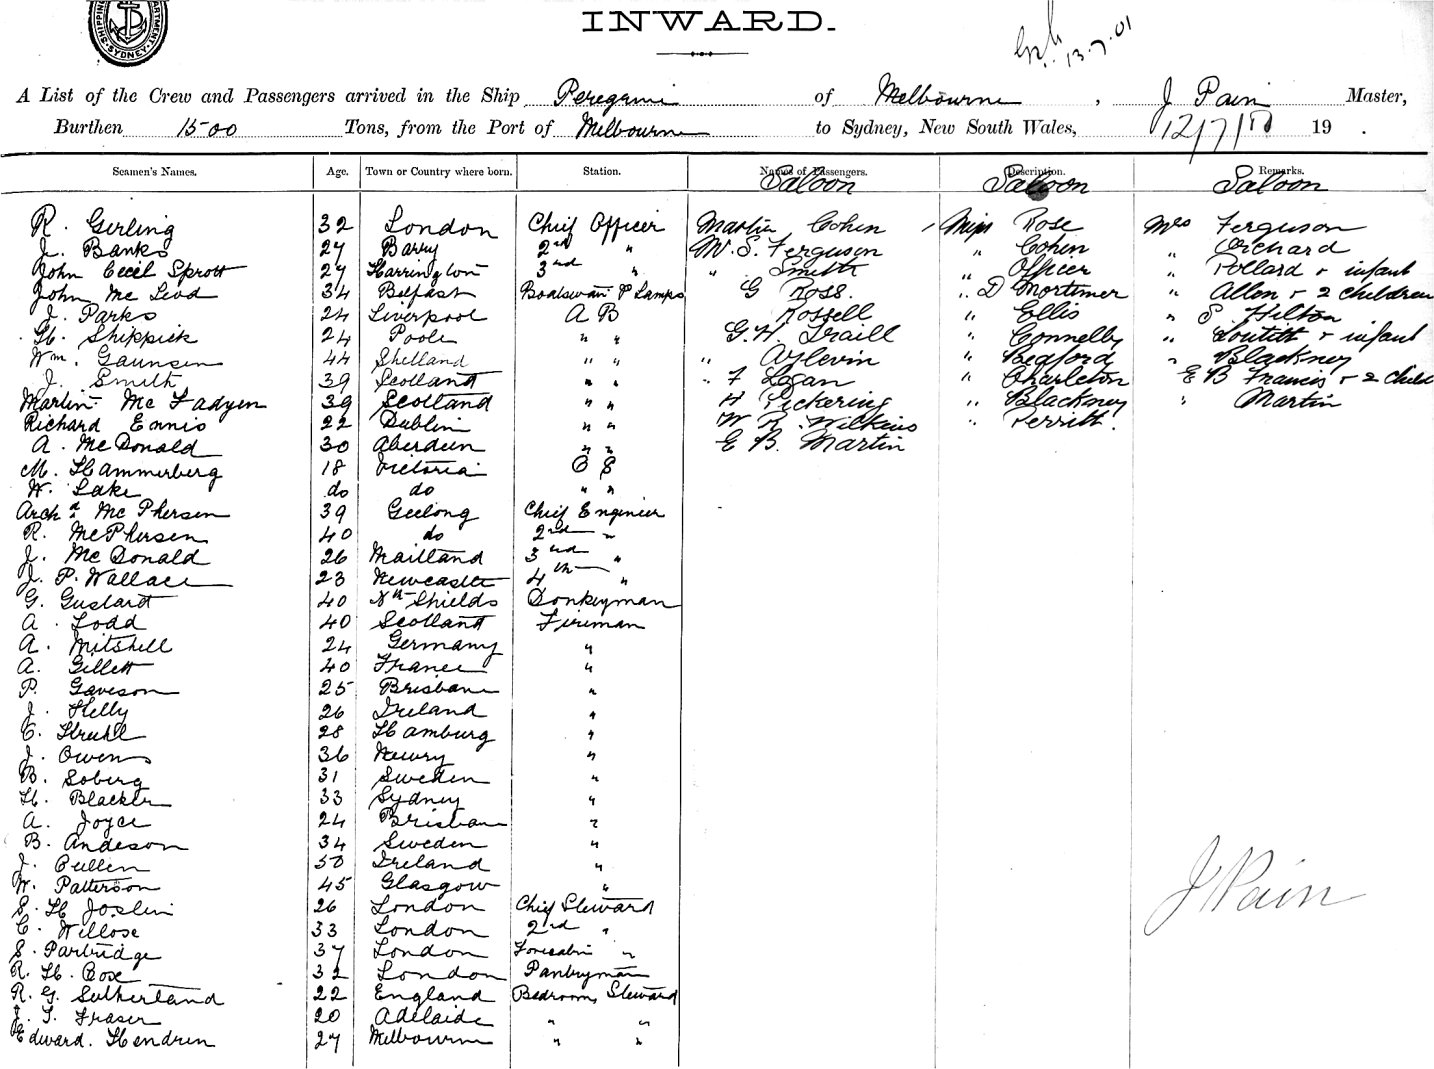 SHIPPING DEPARTMENT SYDNEY
INWARD.
13.7.01
A List of the Crew and Passengers arrived in the Ship Peregrine of Melbourne, J Pain Master,
Burthen 1500 Tons, from the Port of Melbourne to Sydney, New South Wales, 12/7/ 19 .
Seamen's Names. Age. Town or Country where born. Station. Names of Passengers. Description. Remarks.
Saloon Saloon Saloon
R. Girling 32 London Chief Officer Martin Cohen Miss Rose Mrs Ferguson
J. Banks 27 Barry 2nd " W. S. Ferguson " Cohen " Orchard
John Cecil Sprott 27 Harrington 3rd " " Smith " Officer " Pollard + infant
John Mc Leod 34 Belfast Boatswain & Lamps G Ross. " D Mortimer " Allon + 2 children
J. Parks 24 Liverpool A B Rossell " Ellis " S. Hilton
H. Shippick 24 Poole " " G. H. Traill " Connelly " Loutitt + infant
Wm. Gaunsen 44 Shetland " " " Azlevin " Bedford " Blackney
J. Smith 39 Scotland " " " F Logan " Charleton E B Francis + 2 Child
Martin Mc Fadyen 39 Scotland " " H Pickering " Blackney " Martin
Richard Ennis 22 Dublin " " W R. Wilkins " Perritt.
A. McDonald 30 Aberdeen " " E B. Martin
M. Hammerberg 18 Victoria O S
W. Lake do do " "
Archd. Mc Phersen 39 Geelong Chief Engineer
R. McPhersen 40 do 2nd "
J. McDonald 26 Maitland 3rd "
J. P. Wallace 23 Newcastle 4th "
G. Gustard 40 Nth Shields Donkeyman
A. Todd 40 Scotland Fireman
A. Mitshell 24 Germany "
A. Gillett 40 France "
P. Gaveson 25 Brisbane "
J. Helly 26 Ireland "
C. 28 Hamburg "
J. Owens 36 Newry "
B. Soberg 31 Sweden "
H. Blackler 33 Sydney "
A. Joyce 24 Brisbane "
B. Andeson 34 Sweden "
J. Cullen 50 Ireland "
W. Patterson 45 Glasgow "
S. H Joslin 26 London Chief Steward
C. Willose 33 London 2nd "
S. Partridge 37 London Forecabin "
R. H. Cose 32 London Pantryman
R. G. Sutherland 22 England Bedroom Steward
J. T. Fraser 20 Adelaide " "
Edward. Hendren 27 Melbourne " "
J Pain